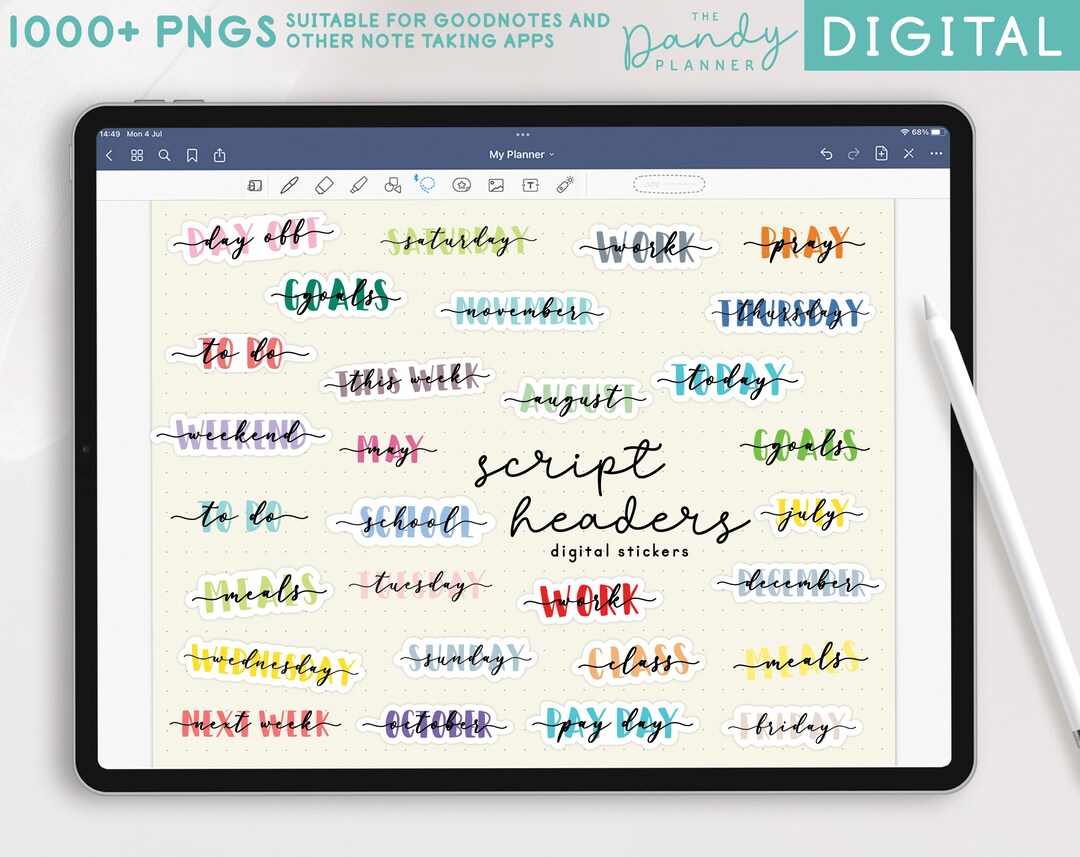 1000+ PNGS
SUITABLE FOR GOODNOTES AND
OTHER NOTE TAKING APPS
THE
Dandy
PLANNER
DIGITAL
14:49 Mon 4 Jul
68%
My Planner
T
DAY OFF day off
SATURDAY saturday
WORK work
PRAY pray
GOALS goals
NOVEMBER november
THURSDAY thursday
TO DO to do
THIS WEEK this week
AUGUST august
TODAY today
WEEKEND weekend
MAY may
script
GOALS goals
TO DO to do
SCHOOL school
headers
JULY july
digital stickers
MEALS meals
TUESDAY tuesday
WORK work
DECEMBER december
WEDNESDAY wednesday
SUNDAY sunday
CLASS class
MEALS meals
NEXT WEEK next week
OCTOBER october
PAY DAY pay day
FRIDAY friday